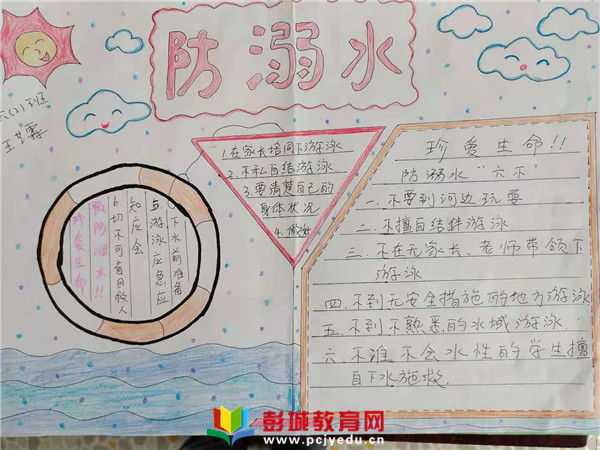 防溺水
班
王艺
1.在家长培同下游泳
2.不私自结游泳
3.要清楚自己的
身体状况
4.做好
下水前准备
与游泳应急应
知应会
6.切不可盲目救人
预防溺水!!
珍爱生命
珍爱生命!!
防溺水"六不"
一.不要到河边玩耍
二.不擅自结伴游泳
三.不在无家长、老师带领下
游泳
四.不到无安全措施的地方游泳
五.不到不熟悉的水域游泳
六.不准不会水性的学生擅
自下水施救.
彭城教育网
www.pcjyedu.cn